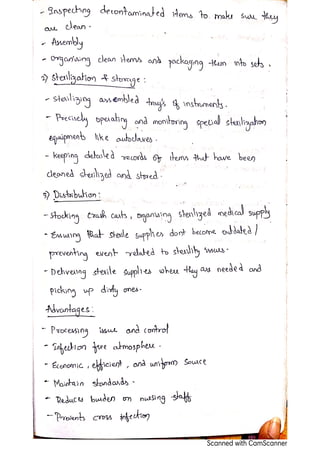 - Inspecting decontaminated items to make sure they
are clean.
- Assembly
- Organising clean items and packaging them into sets.
2) Sterilization & storage :
- Sterilizing assembled tray's & instruments.
- Precisely operating and monitoring special sterilization
equipments like autoclaves.
- keeping detailed records of items that have been
cleaned sterilized and stored.
3) Distribution:
- Stocking crash carts, organising sterilized medical supply
- Ensuring that sterile supplies dont become outdated /
preventing event related to sterility issues.
- Delivering sterile supplies where they are needed and
picking up dirty ones.
Advantages :
- Processing issue and control
- Infection free atmosphere.
- Economic, efficient, and uniform source
- Maintain standards.
- Reduce burden on nursing staff
- Prevents cross infection
Scanned with CamScanner